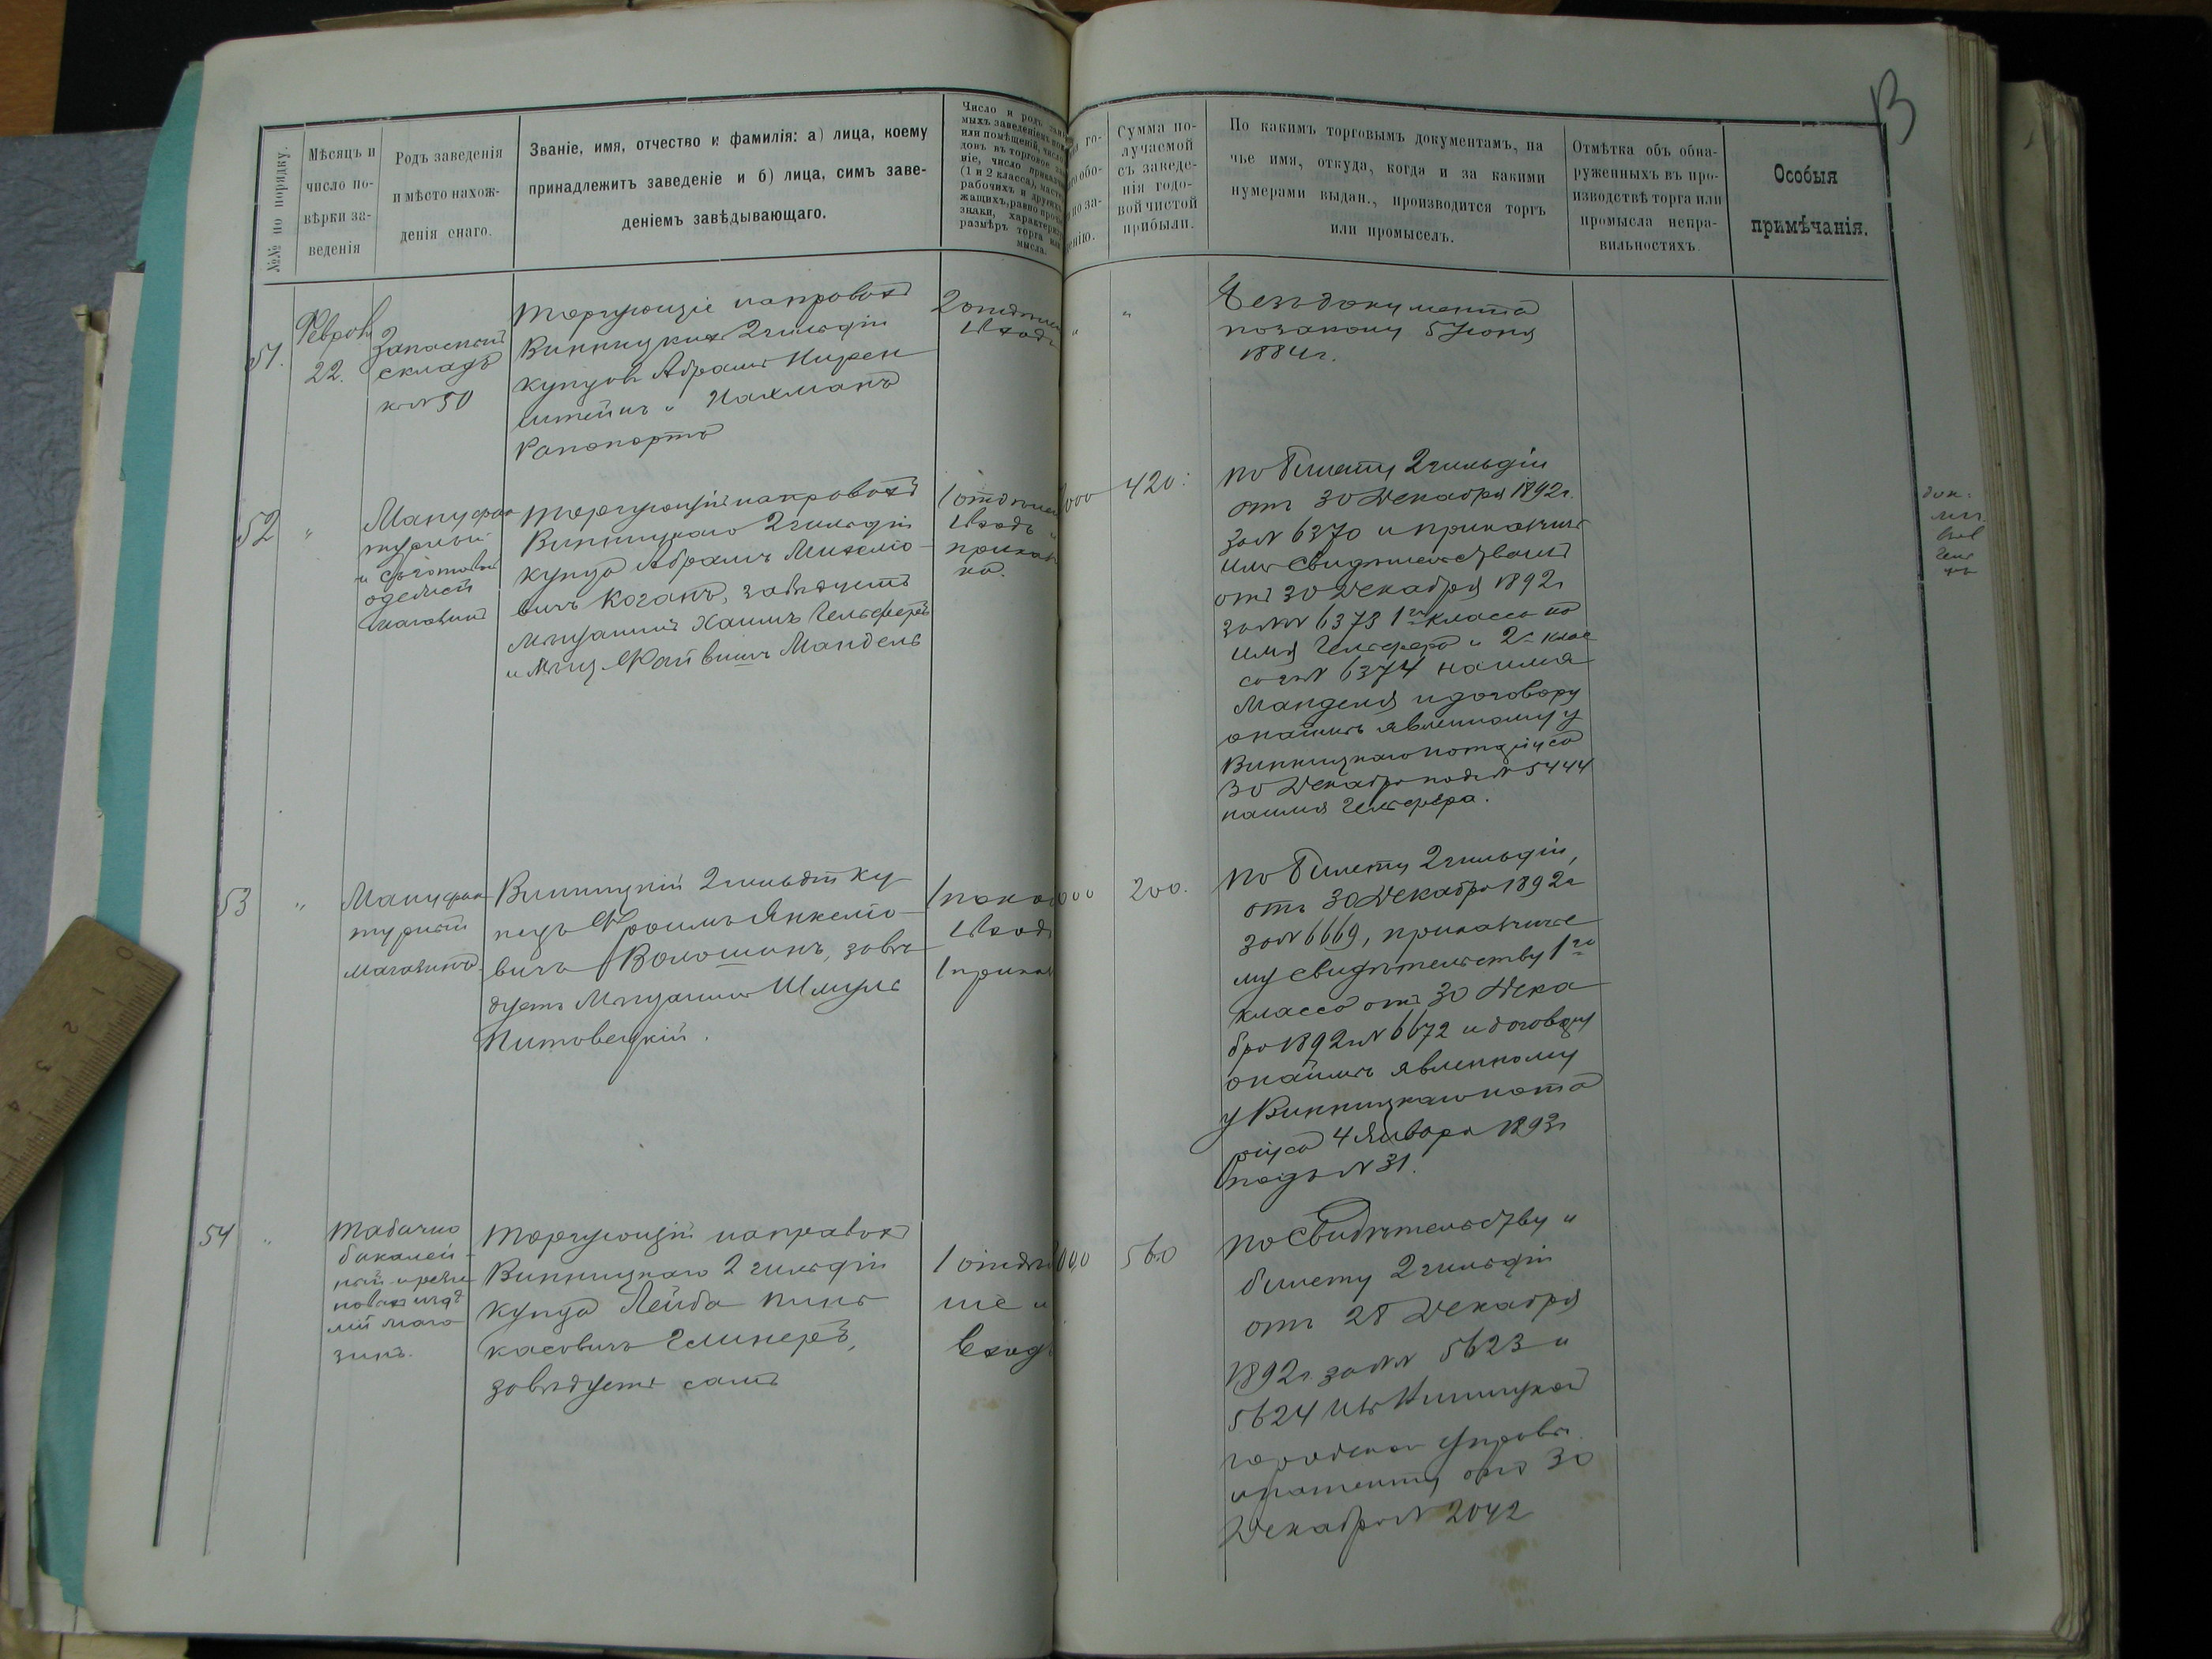 13
№№ по порядку.
Мѣсяцъ и
число по-
вѣрки за-
веденія
Родъ заведенія
и мѣсто нахож-
денія онаго.
Званіе, имя, отчество и фамилія: а) лица, коему
принадлежитъ заведеніе и б) лица, симъ заве-
деніемъ завѣдывающаго.
Число и родъ
мыхъ заведеніемъ
или помѣщеній, число
довъ въ торговое
ніе, число
(1 и 2 класса),
рабочихъ и другихъ
жащихъ, равно
знаки,
размѣръ торга или
мысла.
Сумма по-
лучаемой
съ заведе-
нія годо-
вой чистой
прибыли.
По какимъ торговымъ документамъ, на
чье имя, откуда, когда и за какими
нумерами выдан., производится торгъ
или промыселъ.
Отмѣтка объ обна-
руженныхъ въ про-
изводствѣ торга или
промысла непра-
вильностяхъ.
Особыя
примѣчанія.
51.
22.
Запасный
складъ
к № 50
Торгующіе на правахъ
Винницкихъ 2 гильдіи
купцовъ Абрамъ Кирен
штейнъ и Нахманъ
Рапопортъ
входъ
"
"
Безъ документа
по закону 5 Іюня
1884 г.
52
"
Мануфак
турный
и готовой
одежи
магазинъ
Торгующій на правахъ
Винницкаго 2 гильдіи
купца Абрамъ Михеліо-
вичъ Коганъ, завѣдуетъ
Мѣщанинъ Хаимъ Гельферъ
и Мѣщ. Файвишъ Мандель
1 отдѣлен
входъ
приказ
ка.
000
420.
По билету 2 гильдіи
отъ 30 Декабря 1892 г.
за № 6370 и прикащич
имъ свидѣтельствамъ
отъ 30 Декабря 1892 г
за №№ 6373 1го класса на
имя Гельфера и 2го клас
са за № 6374 на имя
Манделя и договору
о наймѣ явленному у
Винницкаго нотаріуса
30 Декабря подъ № 5444
на имя Гельфера.
53
"
Мануфак
турный
магазинъ.
Винницкій 2 гильдіи ку
пецъ Фроимъ Янкеліо-
вичъ Волошинъ, завѣ
дуетъ Мѣщанинъ Шмуль
Литовецкій.
1 входъ
1 прика
000
200.
По билету 2 гильдіи,
отъ 30 Декабря 1892 г
за № 6669, прикащичье
му свидѣтельству 1го
класса отъ 30 Дека
бря 1892 г № 6672 и договору
о наймѣ явленному
у Винницкаго нота
ріуса 4 Января 1893 г
подъ № 31.
54
"
Табачно
бакалей-
ный и рейн
мага
зинъ.
Торгующій на правахъ
Винницкаго 2 гильдіи
купца Лейба Пинь
касовичъ Глинеръ,
завѣдуетъ самъ
1 отдѣл
ніе и
входъ
000
560
По свидѣтельству и
билету 2 гильдіи
отъ 28 Декабря
1892 г. за №№ 5623 и
5624 изъ Винницкой
городской управы
и патенту отъ 30
Декабря № 2042